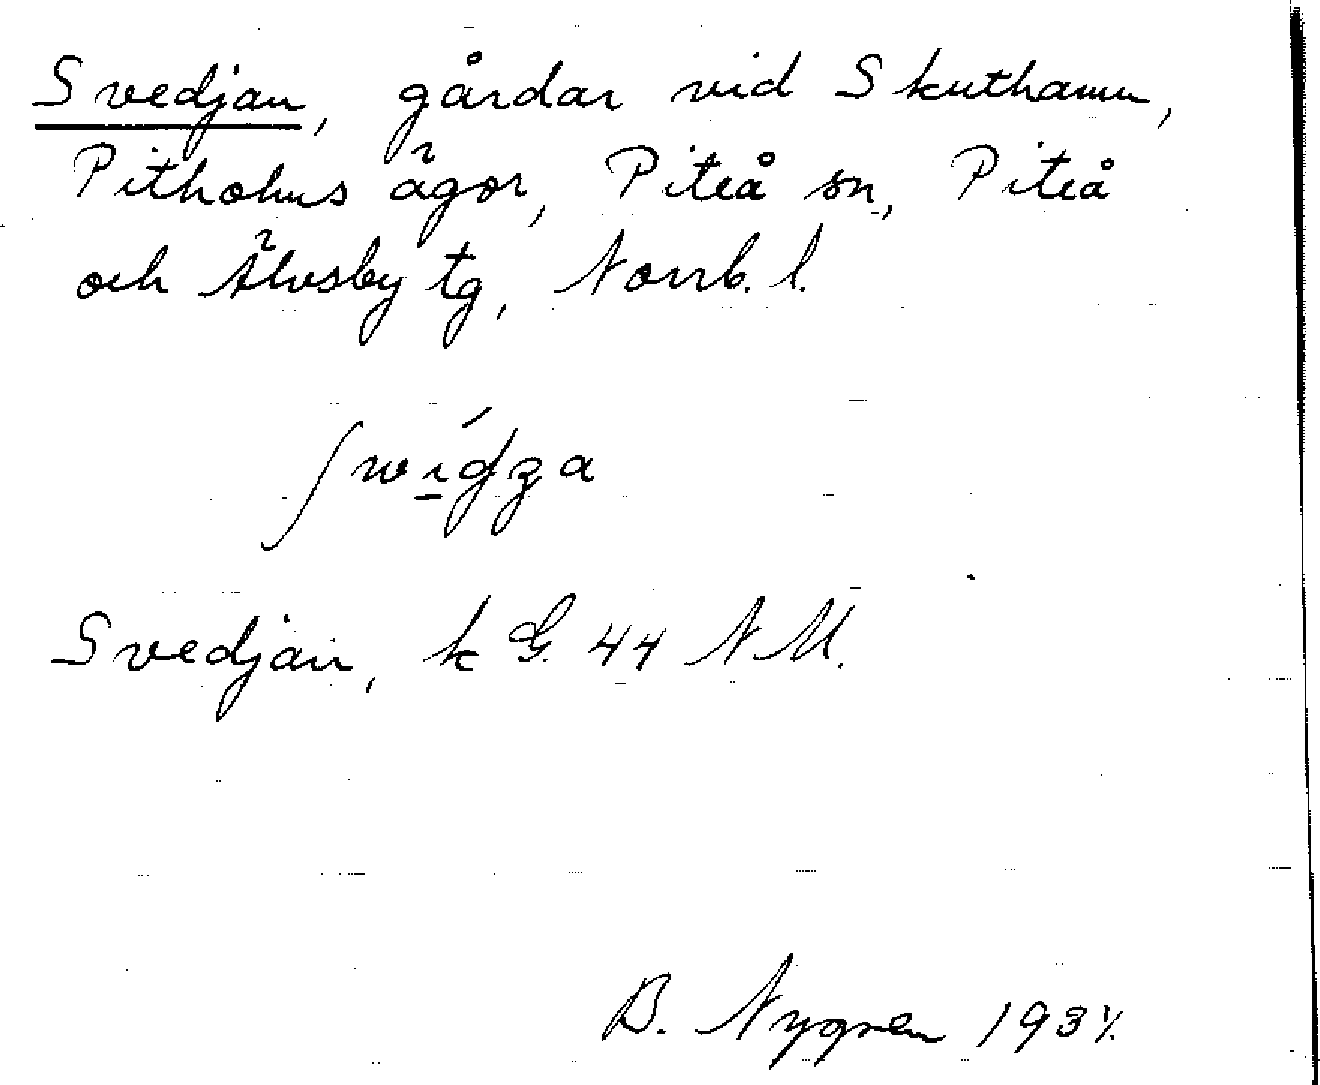 Svedjan, gårdar vid Skuthamn,
Pitholms ägor, Piteå sn, Piteå
och Älvsby tg, Norrb. l.
Svedjan, k G. 44 NM.
B. Nygren 193